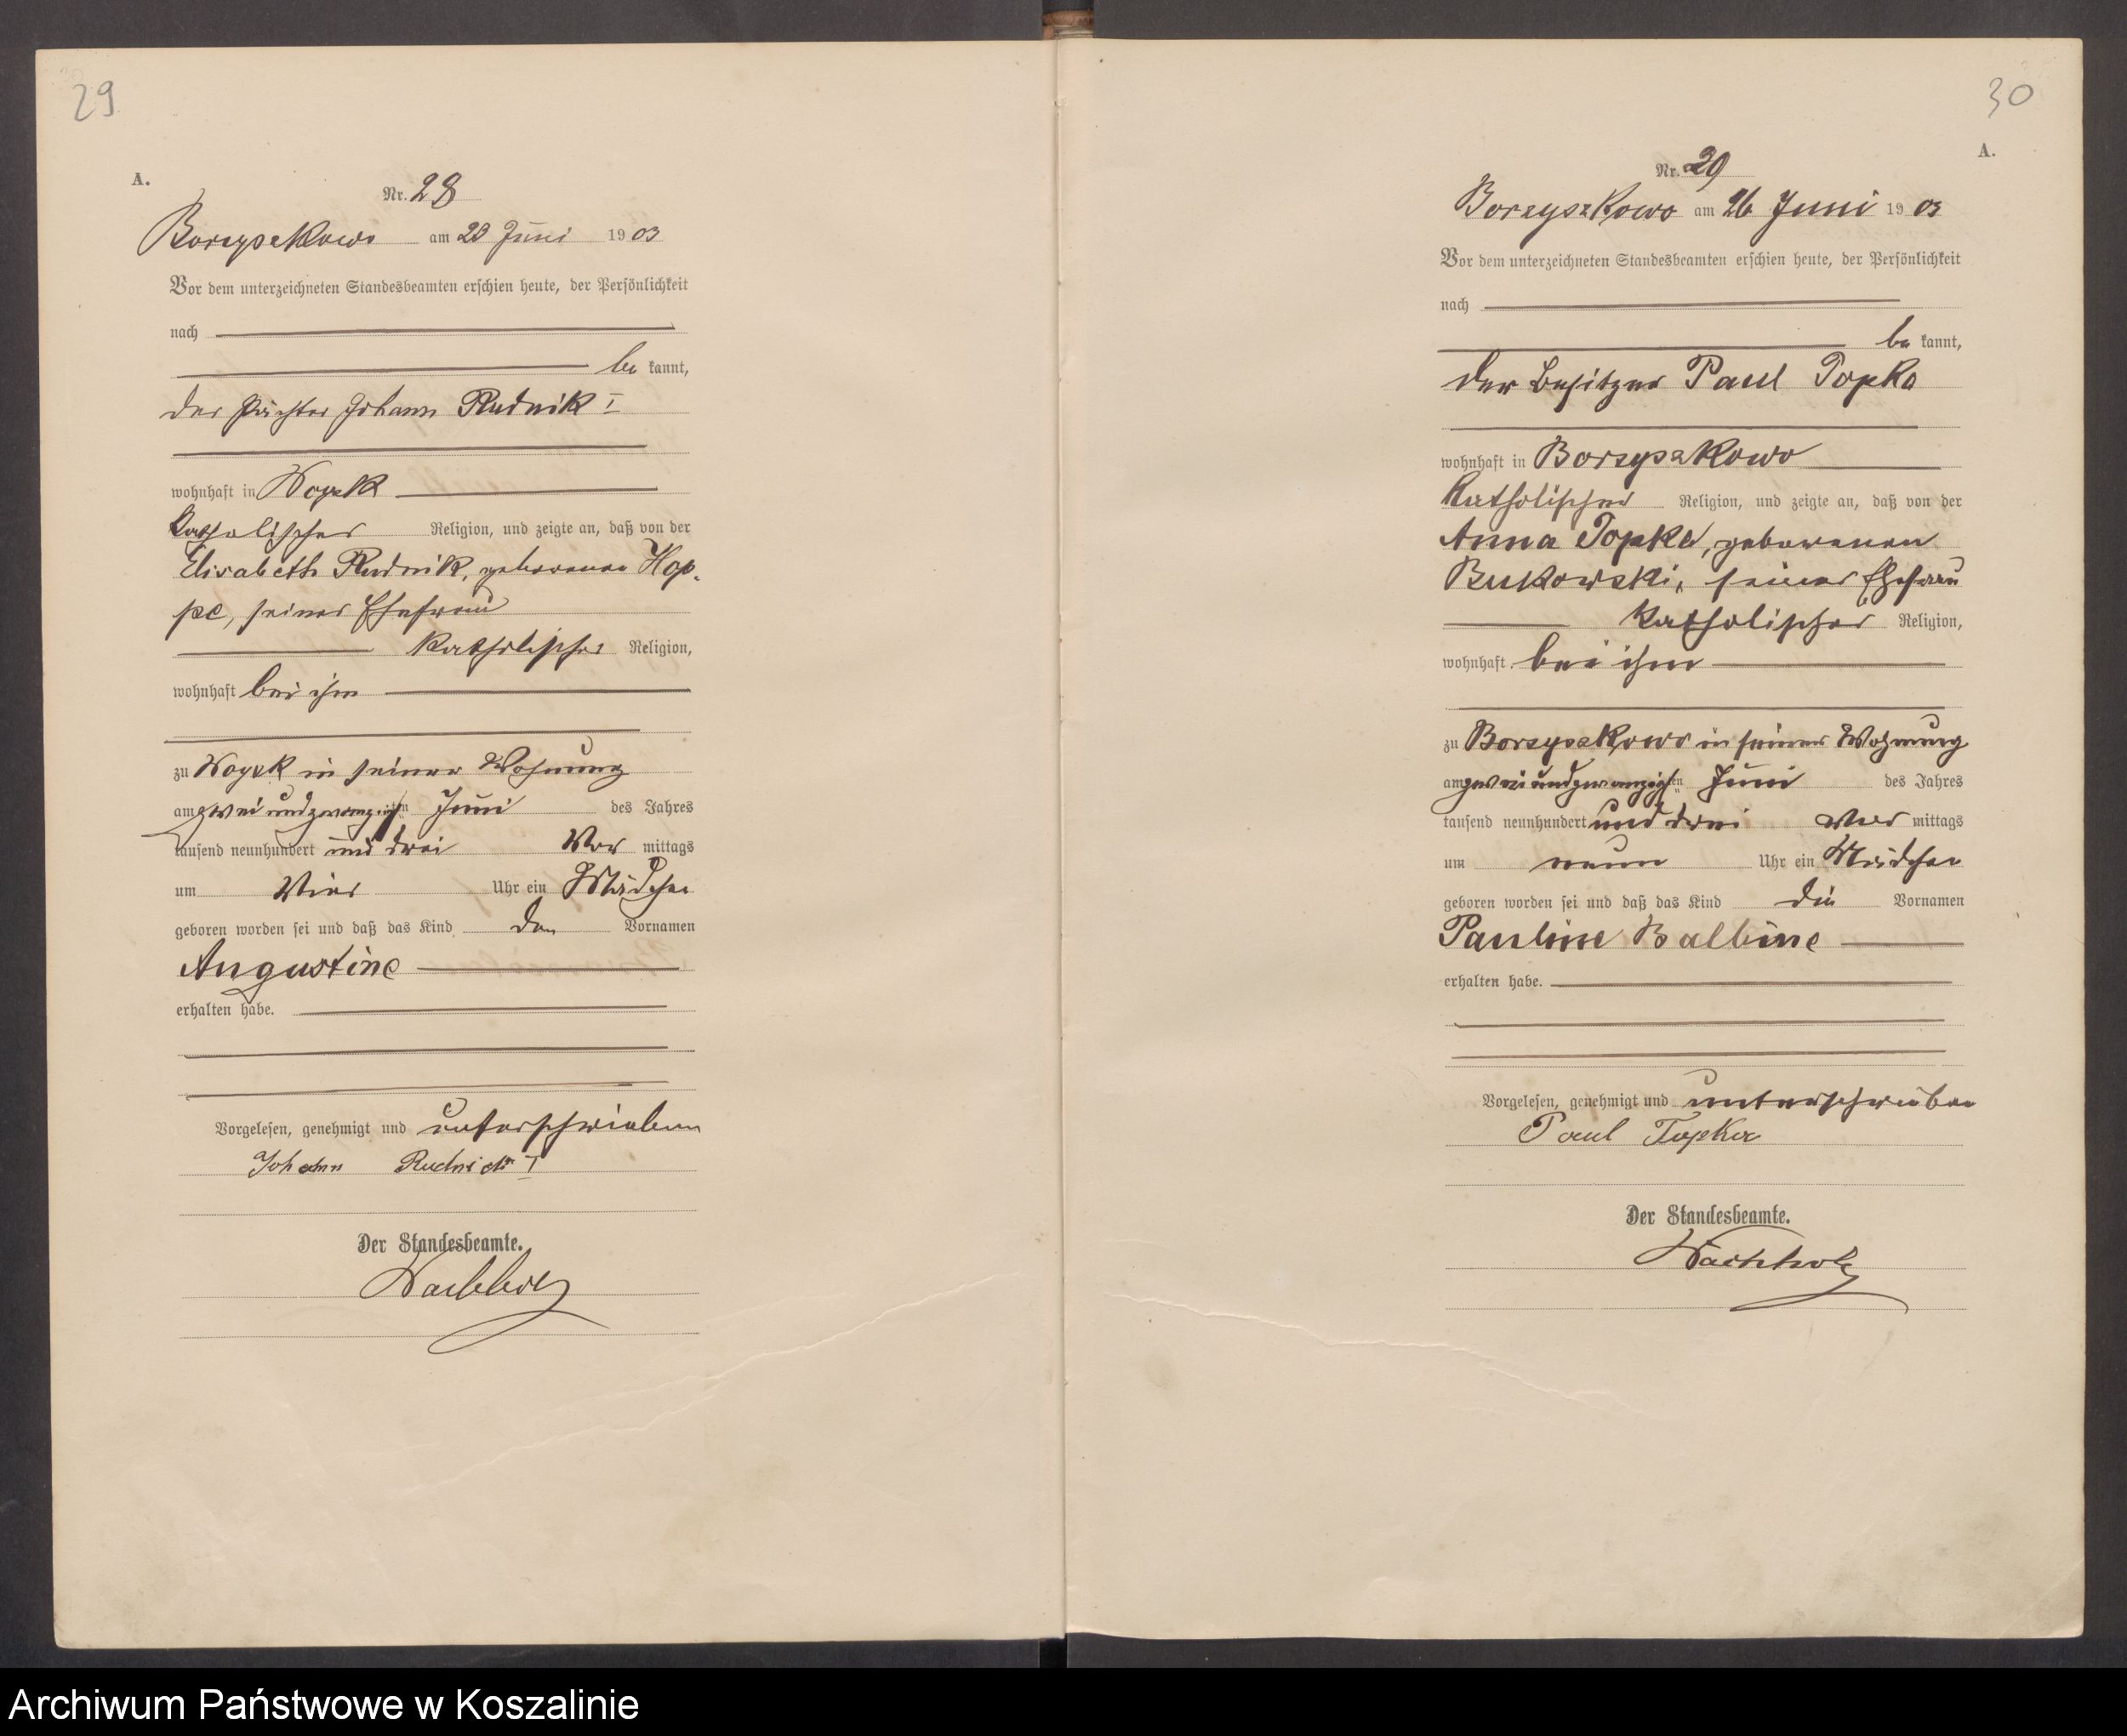 29
A.
Nr. 28
Borzyszkowo am 23 Juni 1903
Vor dem unterzeichneten Standesbeamten erschien heute, der Persönlichkeit
nach
be kannt,
der Pächter Johann Rudnik I
wohnhaft in Woysk
katholischer Religion, und zeigte an, daß von der
Elisabeth Rudnik, geborenen Hop-
pe, seiner Ehefrau
katholischer Religion,
wohnhaft bei ihm
zu Woysk in seiner Wohnung
am zwei und zwanzigsten Juni des Jahres
tausend neunhundert und drei Vor mittags
um Vier Uhr ein Mädchen
geboren worden sei und daß das Kind den Vornamen
Augustine
erhalten habe.
Vorgelesen, genehmigt und unterschrieben
Johann Rudnick I
Der Standesbeamte.
Wachholz
30
A.
Nr. 29
Borzyszkowo am 26 Juni 1903
Vor dem unterzeichneten Standesbeamten erschien heute, der Persönlichkeit
nach
be kannt,
der Besitzer Paul Topka
wohnhaft in Borzyszkowo
katholischer Religion, und zeigte an, daß von der
Anna Topka, geborenen
Bukowski, seiner Ehefrau
katholischer Religion,
wohnhaft bei ihm
zu Borzyszkowo in seiner Wohnung
am zwei und zwanzigsten Juni des Jahres
tausend neunhundert und drei Vor mittags
um neun Uhr ein Mädchen
geboren worden sei und daß das Kind die Vornamen
Pauline Balbine
erhalten habe.
Vorgelesen, genehmigt und unterschrieben
Paul Topka
Der Standesbeamte.
Wachholz
Archiwum Państwowe w Koszalinie